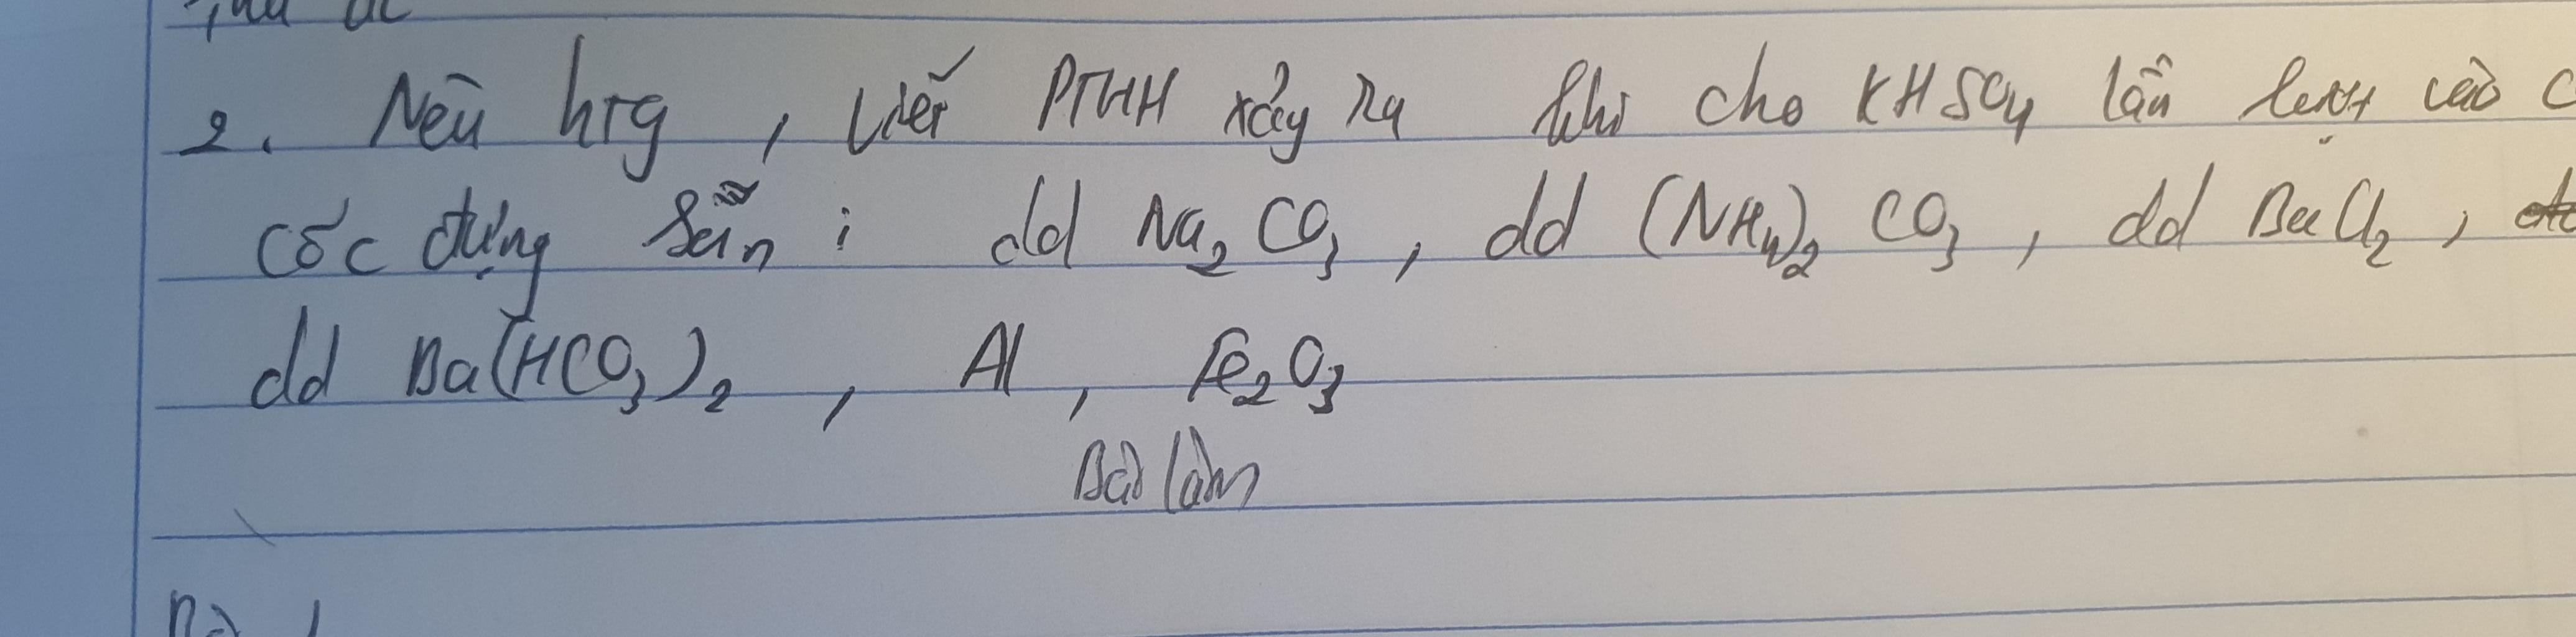 2. Nêu htg, viết PTHH xảy ra khi cho KHSO4 lần lượt vào c
cốc đựng sẵn : dd Na2CO3, dd (NH4)2CO3, dd BaCl2,
dd Ba(HCO3)2, Al, Fe2O3
Bài làm